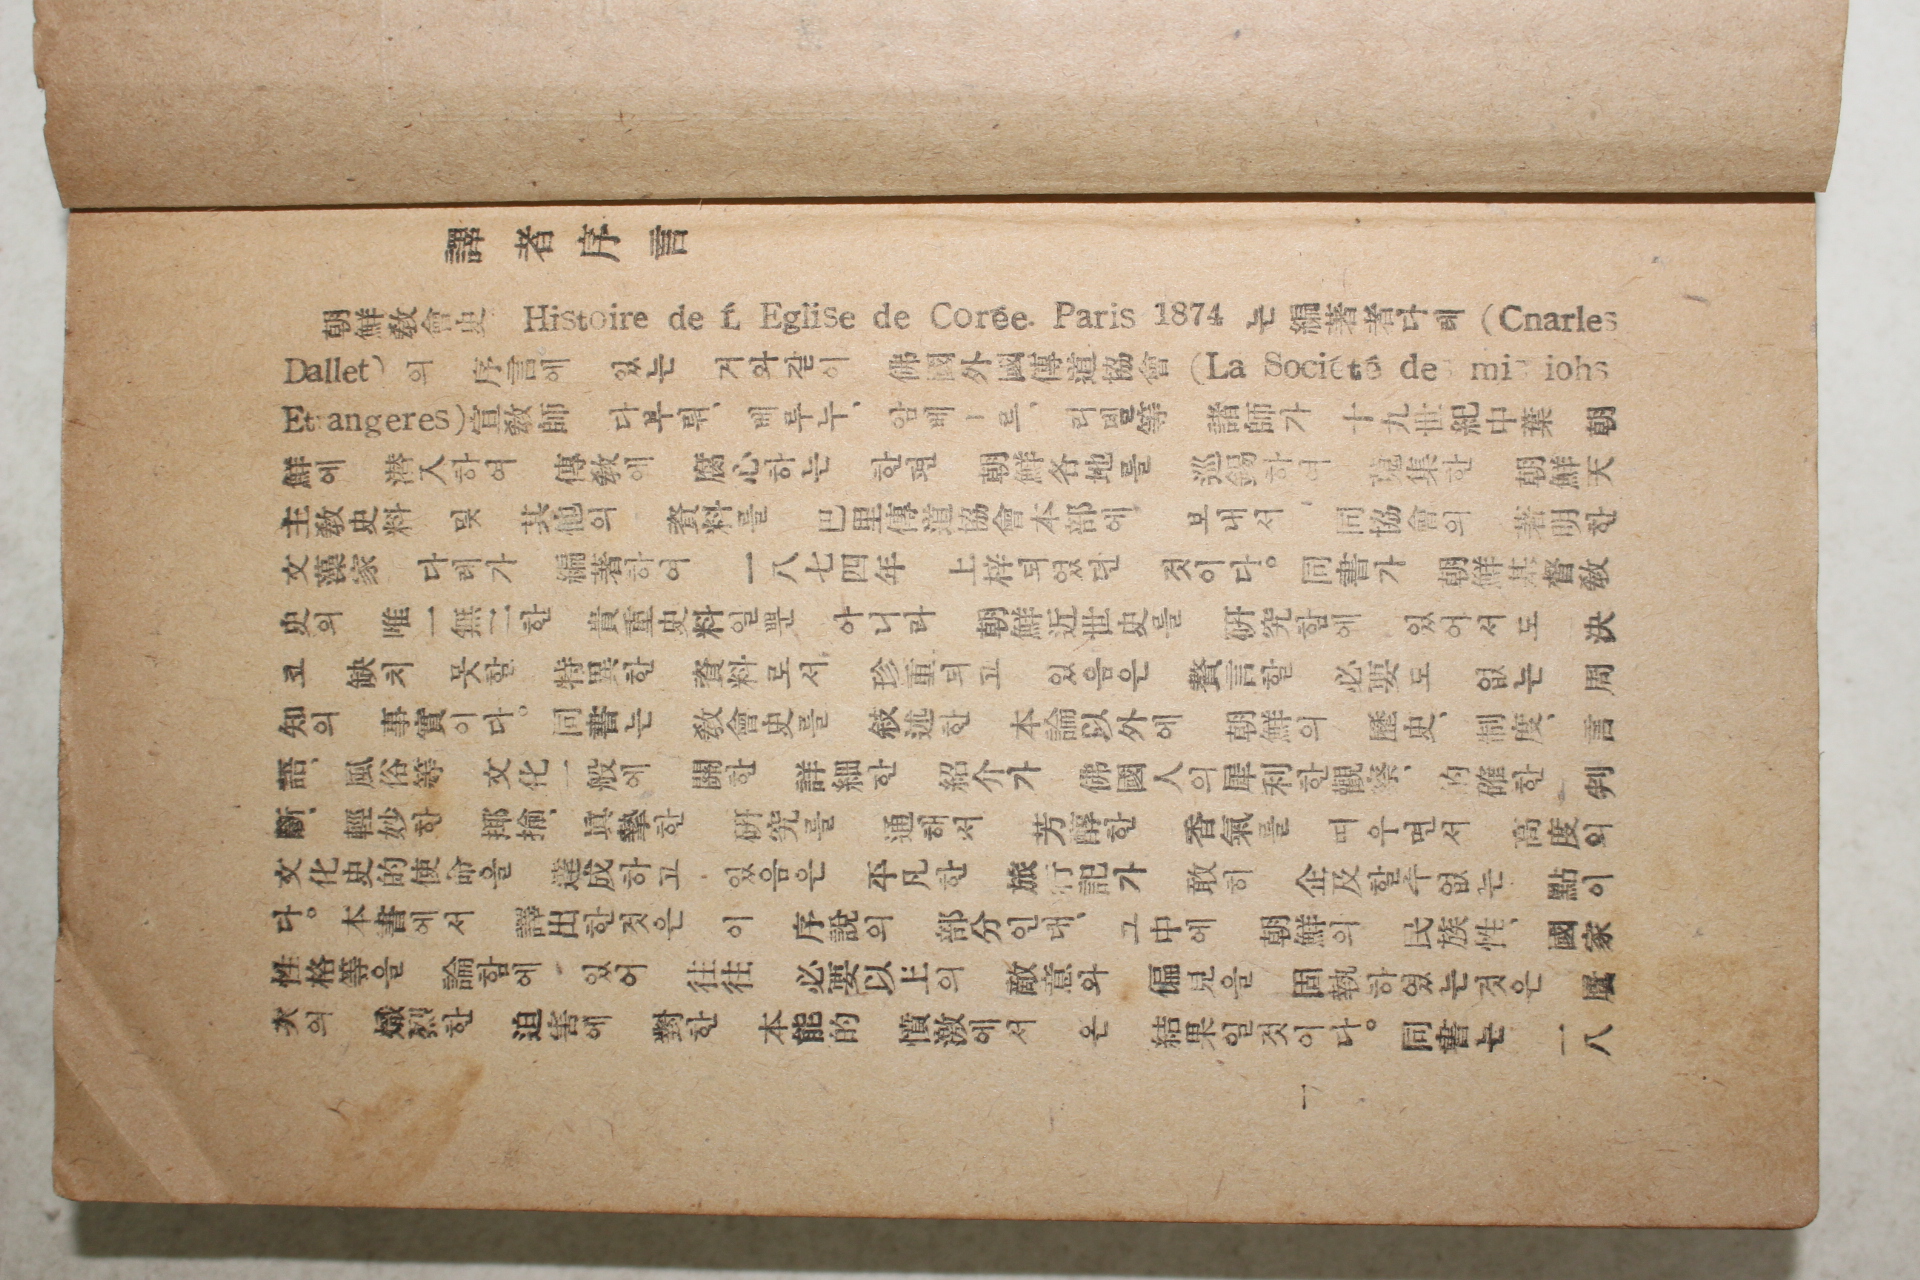 譯者序言
朝鮮敎會史 Histoire de L Eglise de Corée. Paris 1874 는 編著者다레 (Cnarles
Dallet) 의 序言에 있는 거와같이 佛國外國傳道協會 (La Société de mi iohs
Et angeres)宣敎師 다부뤼, 베루누, 암베ㅣ르, 리델等 諸師가 十九世紀中葉 朝
鮮에 潜入하여 傳敎에 腐心하는 한편 朝鮮各地를 巡錫하여 蒐集한 朝鮮天
主敎史料 및 其他의 資料를 巴里傳道協會本部에 보내서 同協會의 著明한
文藻家 다레가 編著하여 一八七四年 上梓되였던 것이다。同書가 朝鮮基督敎
史의 唯一無二한 貴重史料일뿐 아니라 朝鮮近世史를 硏究함에 있어서도 決
코 缺치 못할 特異한 資料로서 珍重되고 있음은 贅言할 必要도 없는 周
知의 事實이다。同書는 敎會史를 敍述한 本論以外에 朝鮮의 歷史、制度、言
語、風俗等 文化一般에 關한 詳細한 紹介가 佛國人의 犀利한觀察、的確한 判
斷、輕妙한 揶揄、眞摯한 硏究를 通해서 芳醇한 香氣를 띄우면서 高度의
文化史的使命을 達成하고 있음은 平凡한 旅行記가 敢히 企及할수없는 點이
다。本書에서 譯出한것은 이 序說의 部分인대、그中에 朝鮮의 民族性、國家
性格等을 論함에 있어 往往 必要以上의 敵意와 偏見을 固執하였는것은 屢
次의 熾烈한 迫害에 對한 本能的 憤激에서 온 結果일것이다。同書는 一八
一